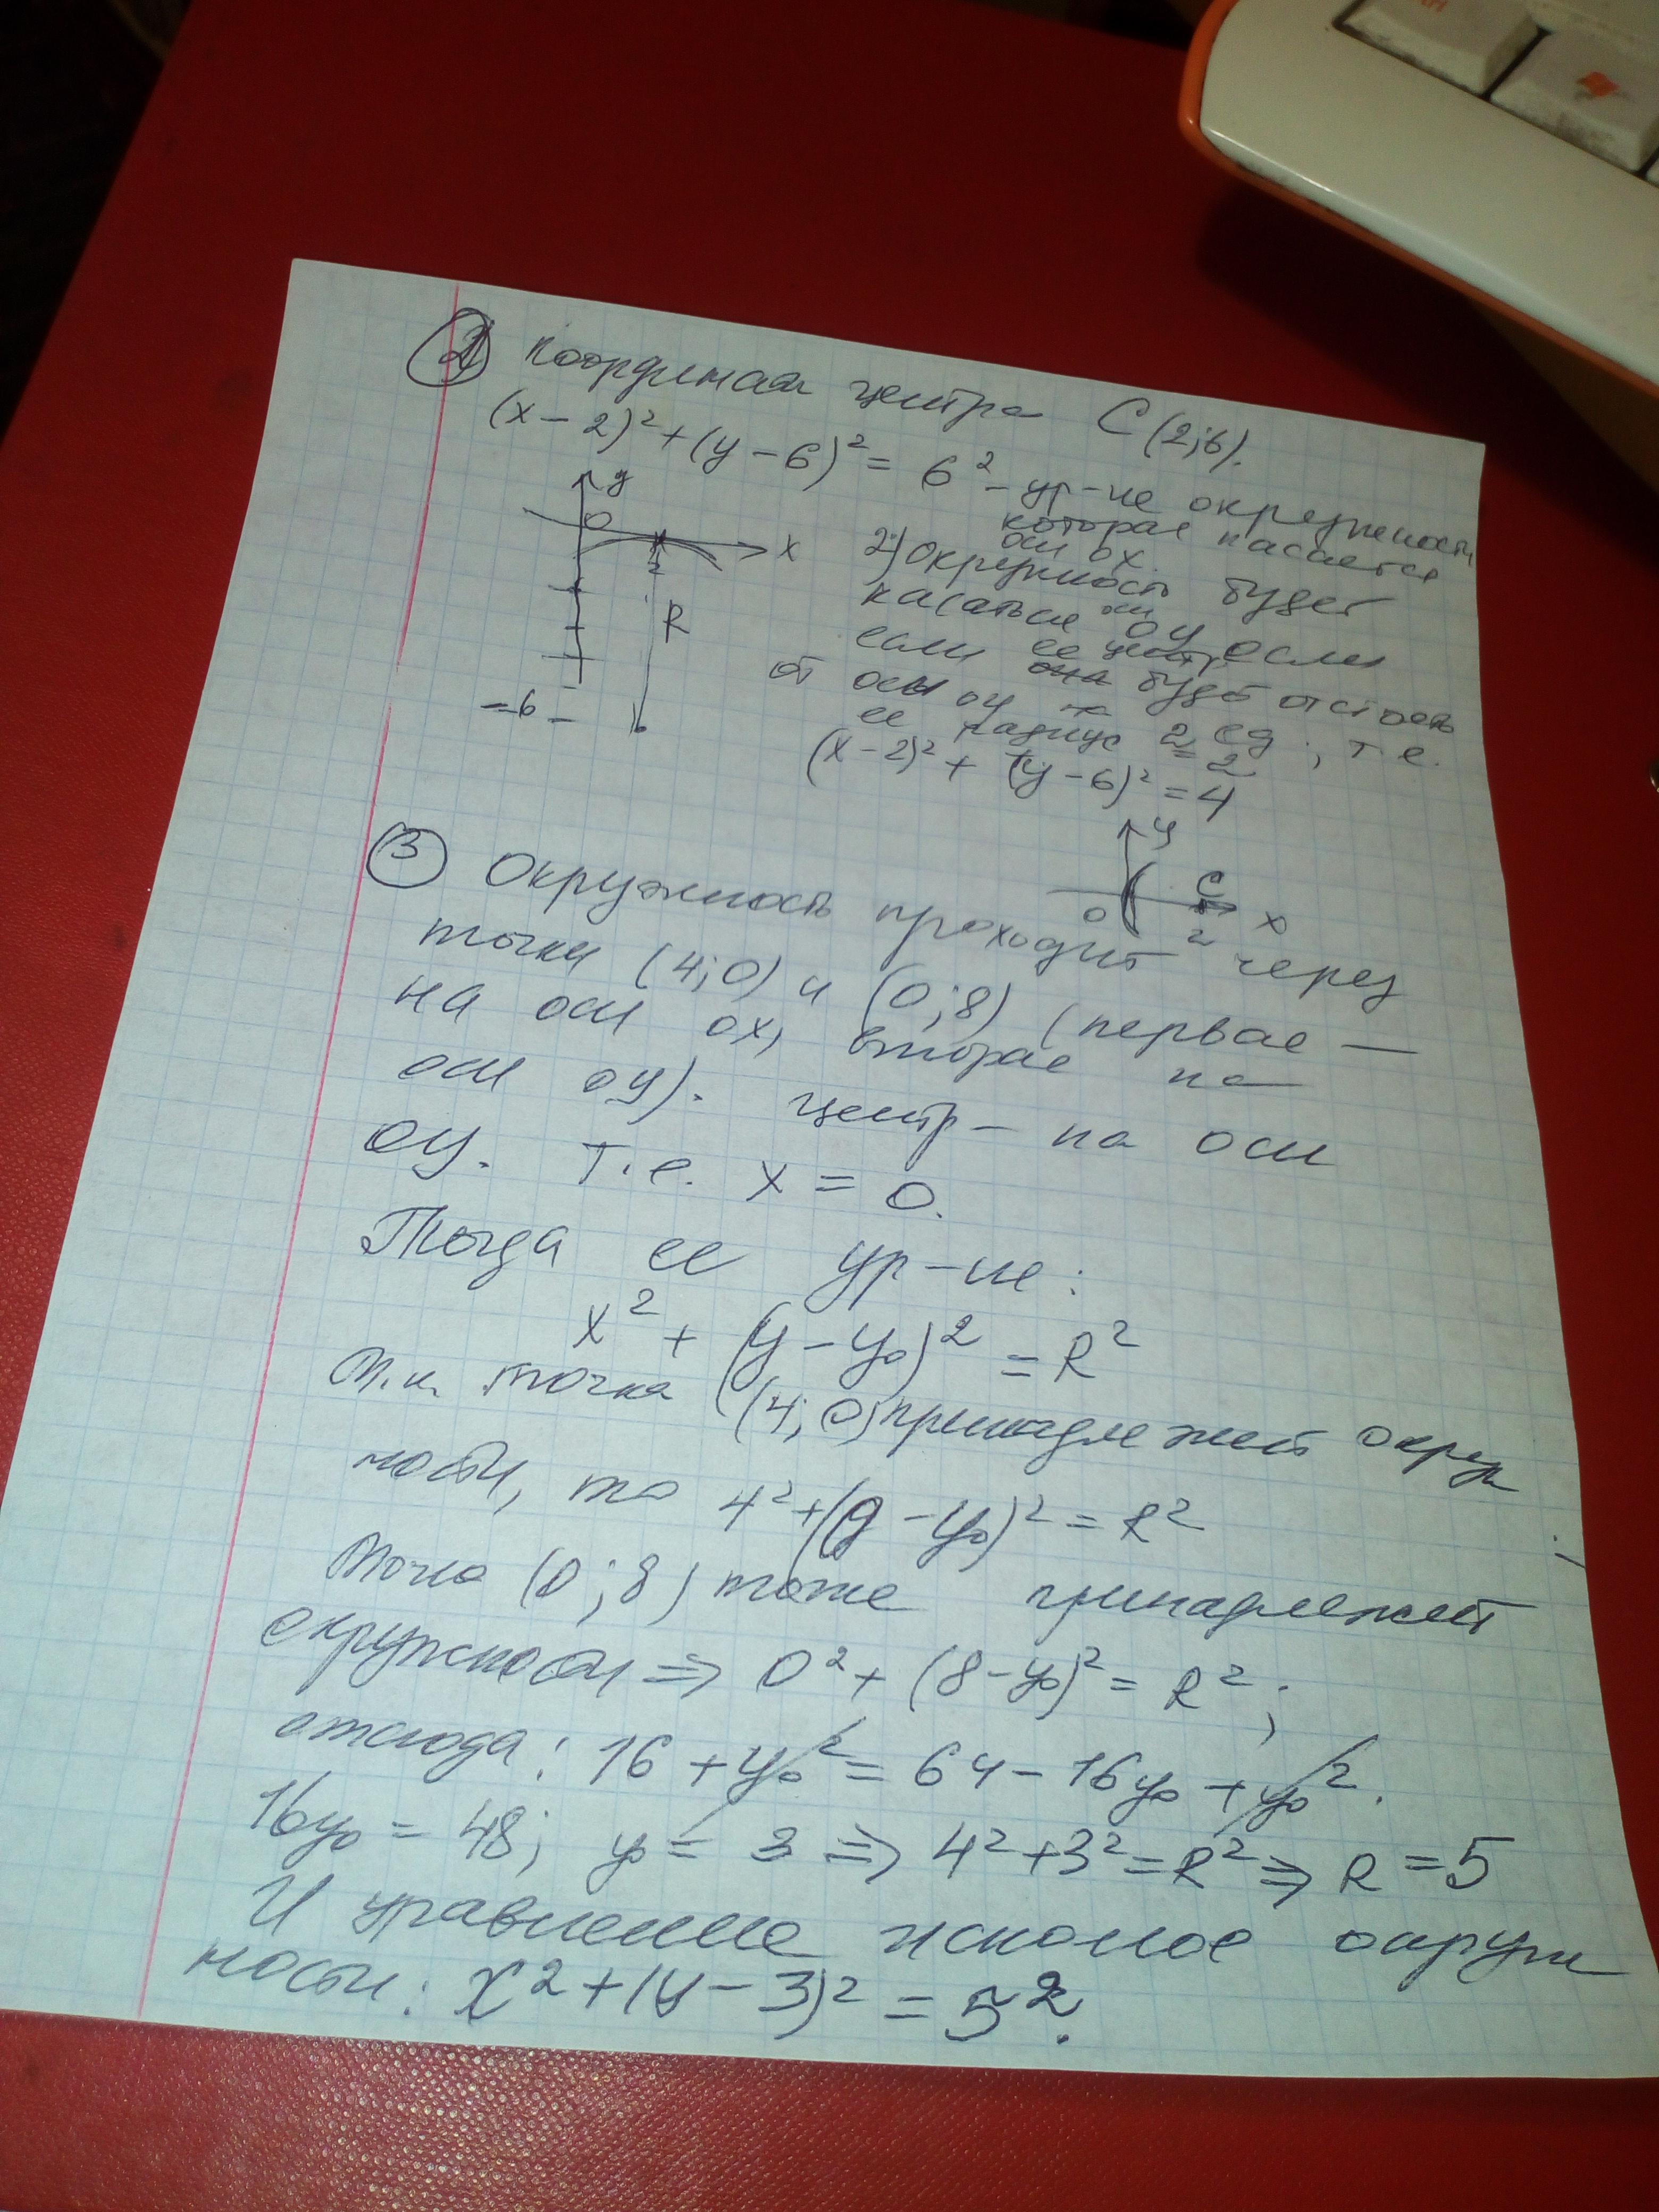 ② Координаты центра C(2;6).
(x-2)²+(y-6)²=6² - ур-ие окружности
которая касается
оси ох.
y
0
x
2
R
-6
2) Окружность будет
касаться оси оу если
если ее центр будет отстоять
от оси оу на
ее радиус 2 ед, т.е.
(x-2)²+(y-6)²=2²=4
y
C
0
2
x
③ Окружность проходит через
точки (4;0) и (0;8) (первая —
на оси ох, вторая на
оси оу). Центр - на оси
оу. т.е. x=0.
Тогда ее ур-ие:
x²+(y-y₀)²=R²
Т.к. точка (4;0) принадлежит окруж
ности, то 4²+(0-y₀)²=R²
Точка (0;8) тоже принадлежит
окружности ⇒ 0²+(8-y₀)²=R²;
отсюда: 16+y₀²=64-16y₀+y₀².
16y₀=48; y₀=3 ⇒ 4²+3²=R² ⇒ R=5
И уравнение искомое окруж
ности: x²+(y-3)²=5².